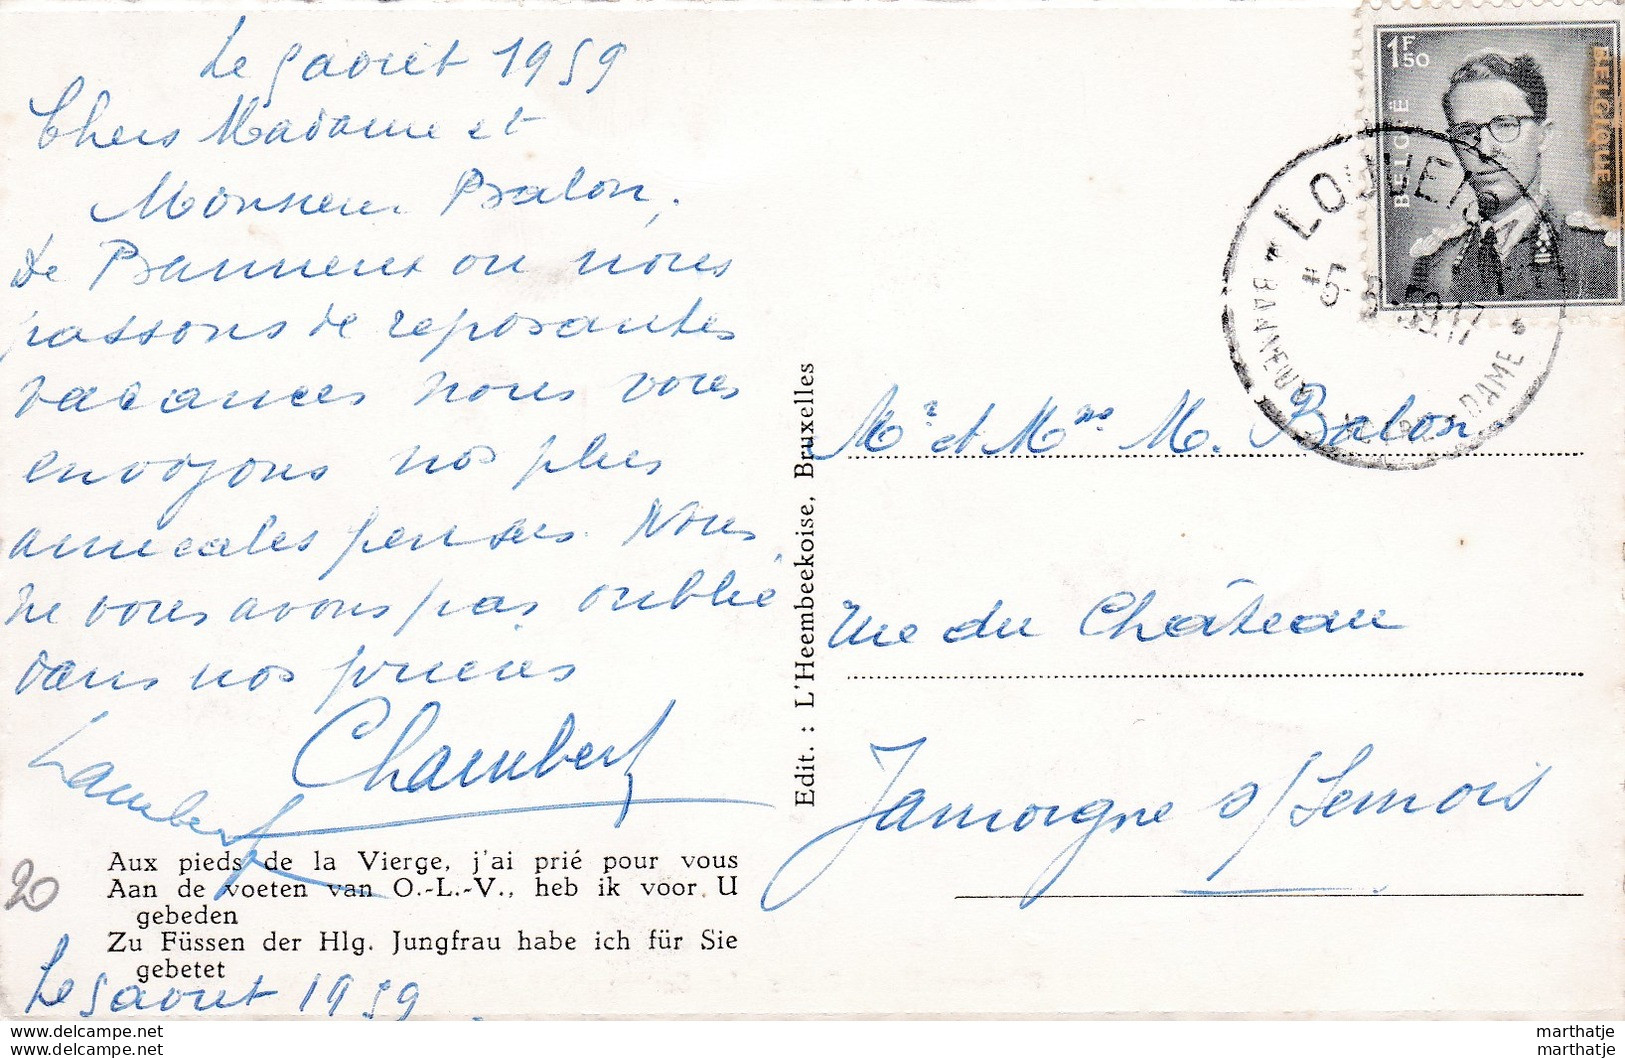 Le 5 aout 1959
Chers Madame et
Monsieur Balon,
De Banneux ou nous
passons de reposantes
vacances nous vous
envoyons nos plus
amicales pensées. Nous
ne vous avons pas oublié
dans nos prières
Lambert
Chambert
Aux pieds de la Vierge, j'ai prié pour vous
Aan de voeten van O.-L.-V., heb ik voor U
gebeden
Zu Füssen der Hlg. Jungfrau habe ich für Sie
gebetet
20
Le 5 aout 1959
Edit. : L'Heembeekoise, Bruxelles
1F50
BELGIË
BELGIQUE
LOUVEIGNÉ
5-8-59.17
BANNEUX NOTRE-DAME
Mr et Mme M. Balon
rue du Château
Jamoigne s/Semois
marthatje
marthatje
delcampe.net
delcampe.net